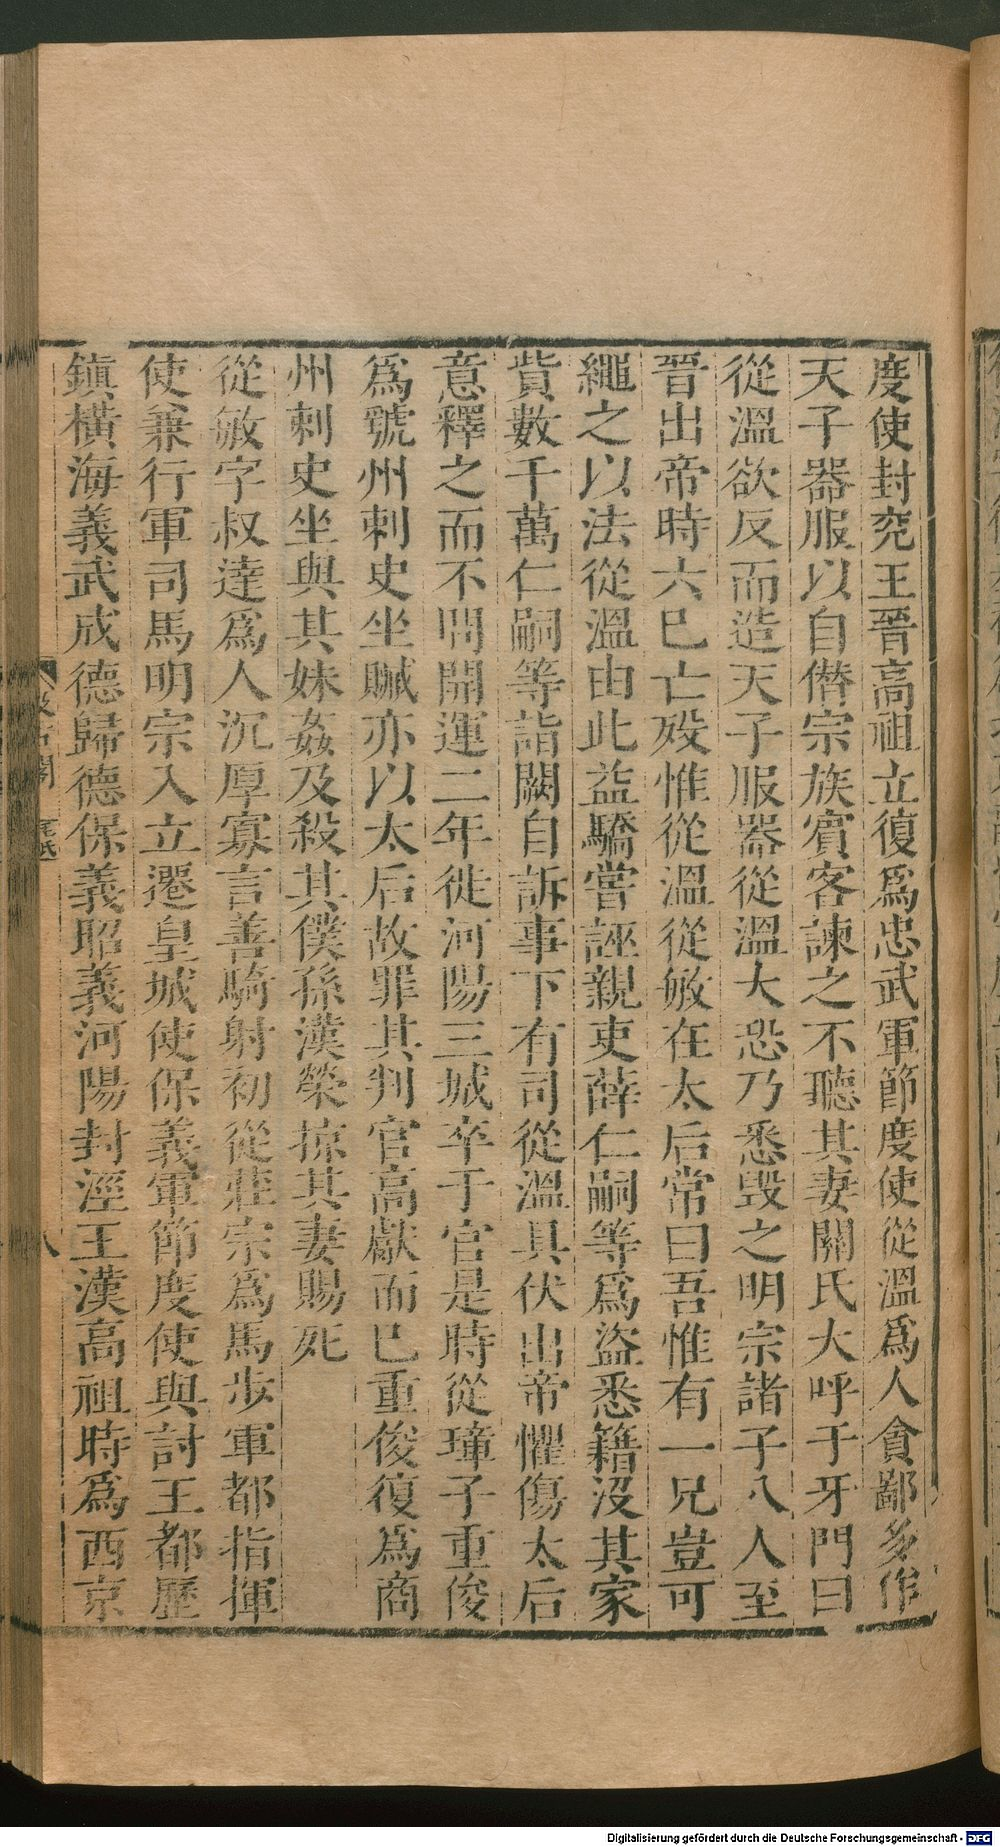 度使封兖王晉高祖立復爲忠武軍節度使從溫爲人貪鄙多作
天子器服以自僭宗族賓客諫之不聽其妻關氏大呼于牙門曰
從溫欲反而造天子服器從溫大恐乃悉毁之明宗諸子八人至
晉出帝時六巳亡殁惟從溫從敏在太后常曰吾惟有一兄豈可
繩之以法從溫由此益驕嘗誣親吏薛仁嗣等爲盜悉籍沒其家
貲數千萬仁嗣等詣闕自訴事下有司從溫具伏出帝懼傷太后
意釋之而不問開運二年徙河陽三城卒于官是時從璋子重俊
爲虢州刺史坐贓亦以太后故罪其判官高獻而巳重俊復爲商
州刺史坐與其妹姦及殺其僕孫漢榮掠其妻賜死
從敏字叔達爲人沉厚寡言善騎射初從莊宗爲馬步軍都指揮
使兼行軍司馬明宗入立遷皇城使保義軍節度使與討王都歷
鎮横海義武成德歸德保義昭義河陽封涇王漢高祖時爲西京
八
Digitalisierung gefördert durch die Deutsche Forschungsgemeinschaft - DFG